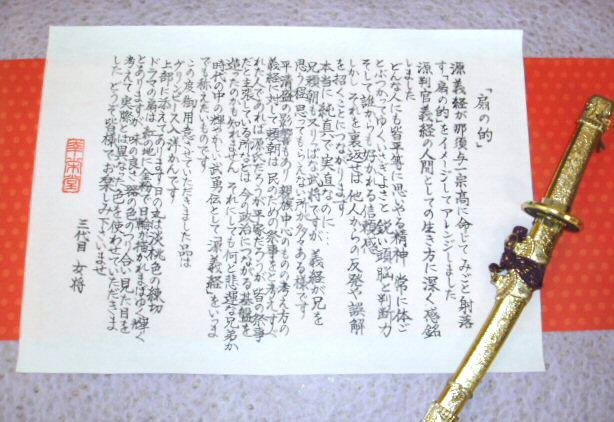 「扇の的」
源義経が那須与一宗高に命じてみごと射落
す「扇の的」をイメージしてアレンジしました
源判官義経の人間としての生き方に深く感銘
しました
どんな人にも皆平等に思いやる精神 常に体ご
とぶつかってゆくいさぎよさと 鋭い頭脳と判断力
そして誰からも好かれる信頼感
しかしそれを裏返せば 他人からの反発や誤解
を招くことにつながります
本当に純真で実直なのに…
兄頼朝もりっぱな武将ですが 義経が兄を
思う程 思ってもらえない所が多々ある様です
平清盛の影響もあり 親族中心のものの考え方の
義経に対して頼朝は 民のための祭事をと考えすぐ
れた人であれば源氏だろうが平家だろうが 皆の祭事
だと主張している所などは 今の政治につながる基盤を
造ったのかも知れません それにしても何と悲運な兄弟か
時代の中の輝やかしい武勇伝として「源義経」をいつま
でも称えたいものです
この度御用意させていただきました品は
グリンピース入 洋かんです
上部に添えてあります日の丸は淡桃色の練切
ドラマの扇は 紅の地に金粉で日輪が描かれまばゆく輝く
とありますが 味の良さ 器の色とのつり合い 見た目を
考えて 実際とは異なった色を使わせていただきま
した どうぞ皆様でお楽しみ下さいませ
三代目 女将